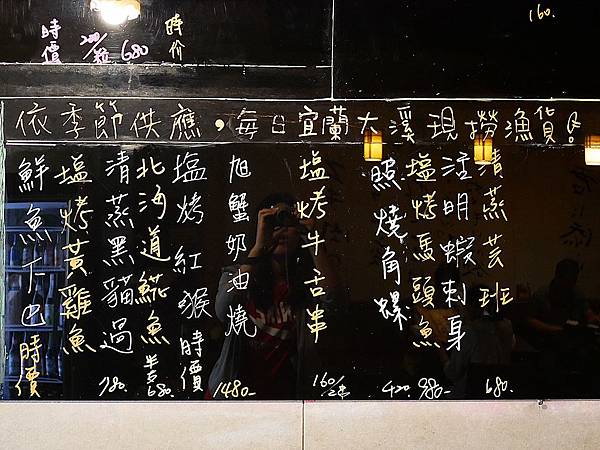 160.
時價
200/粒
680
時价
依季節供應，每日宜蘭大溪現撈漁貨。
清蒸芸班 680.
活明蝦刺身
塩烤馬頭魚 980-
照燒角螺 420
塩烤牛舌串 160/2串
旭蟹奶油燒 1480-
塩烤紅猴時價
北海道䱋魚 半巴680.
清蒸黑貓過 780.
塩烤黃雞魚
鮮魚下巴時價